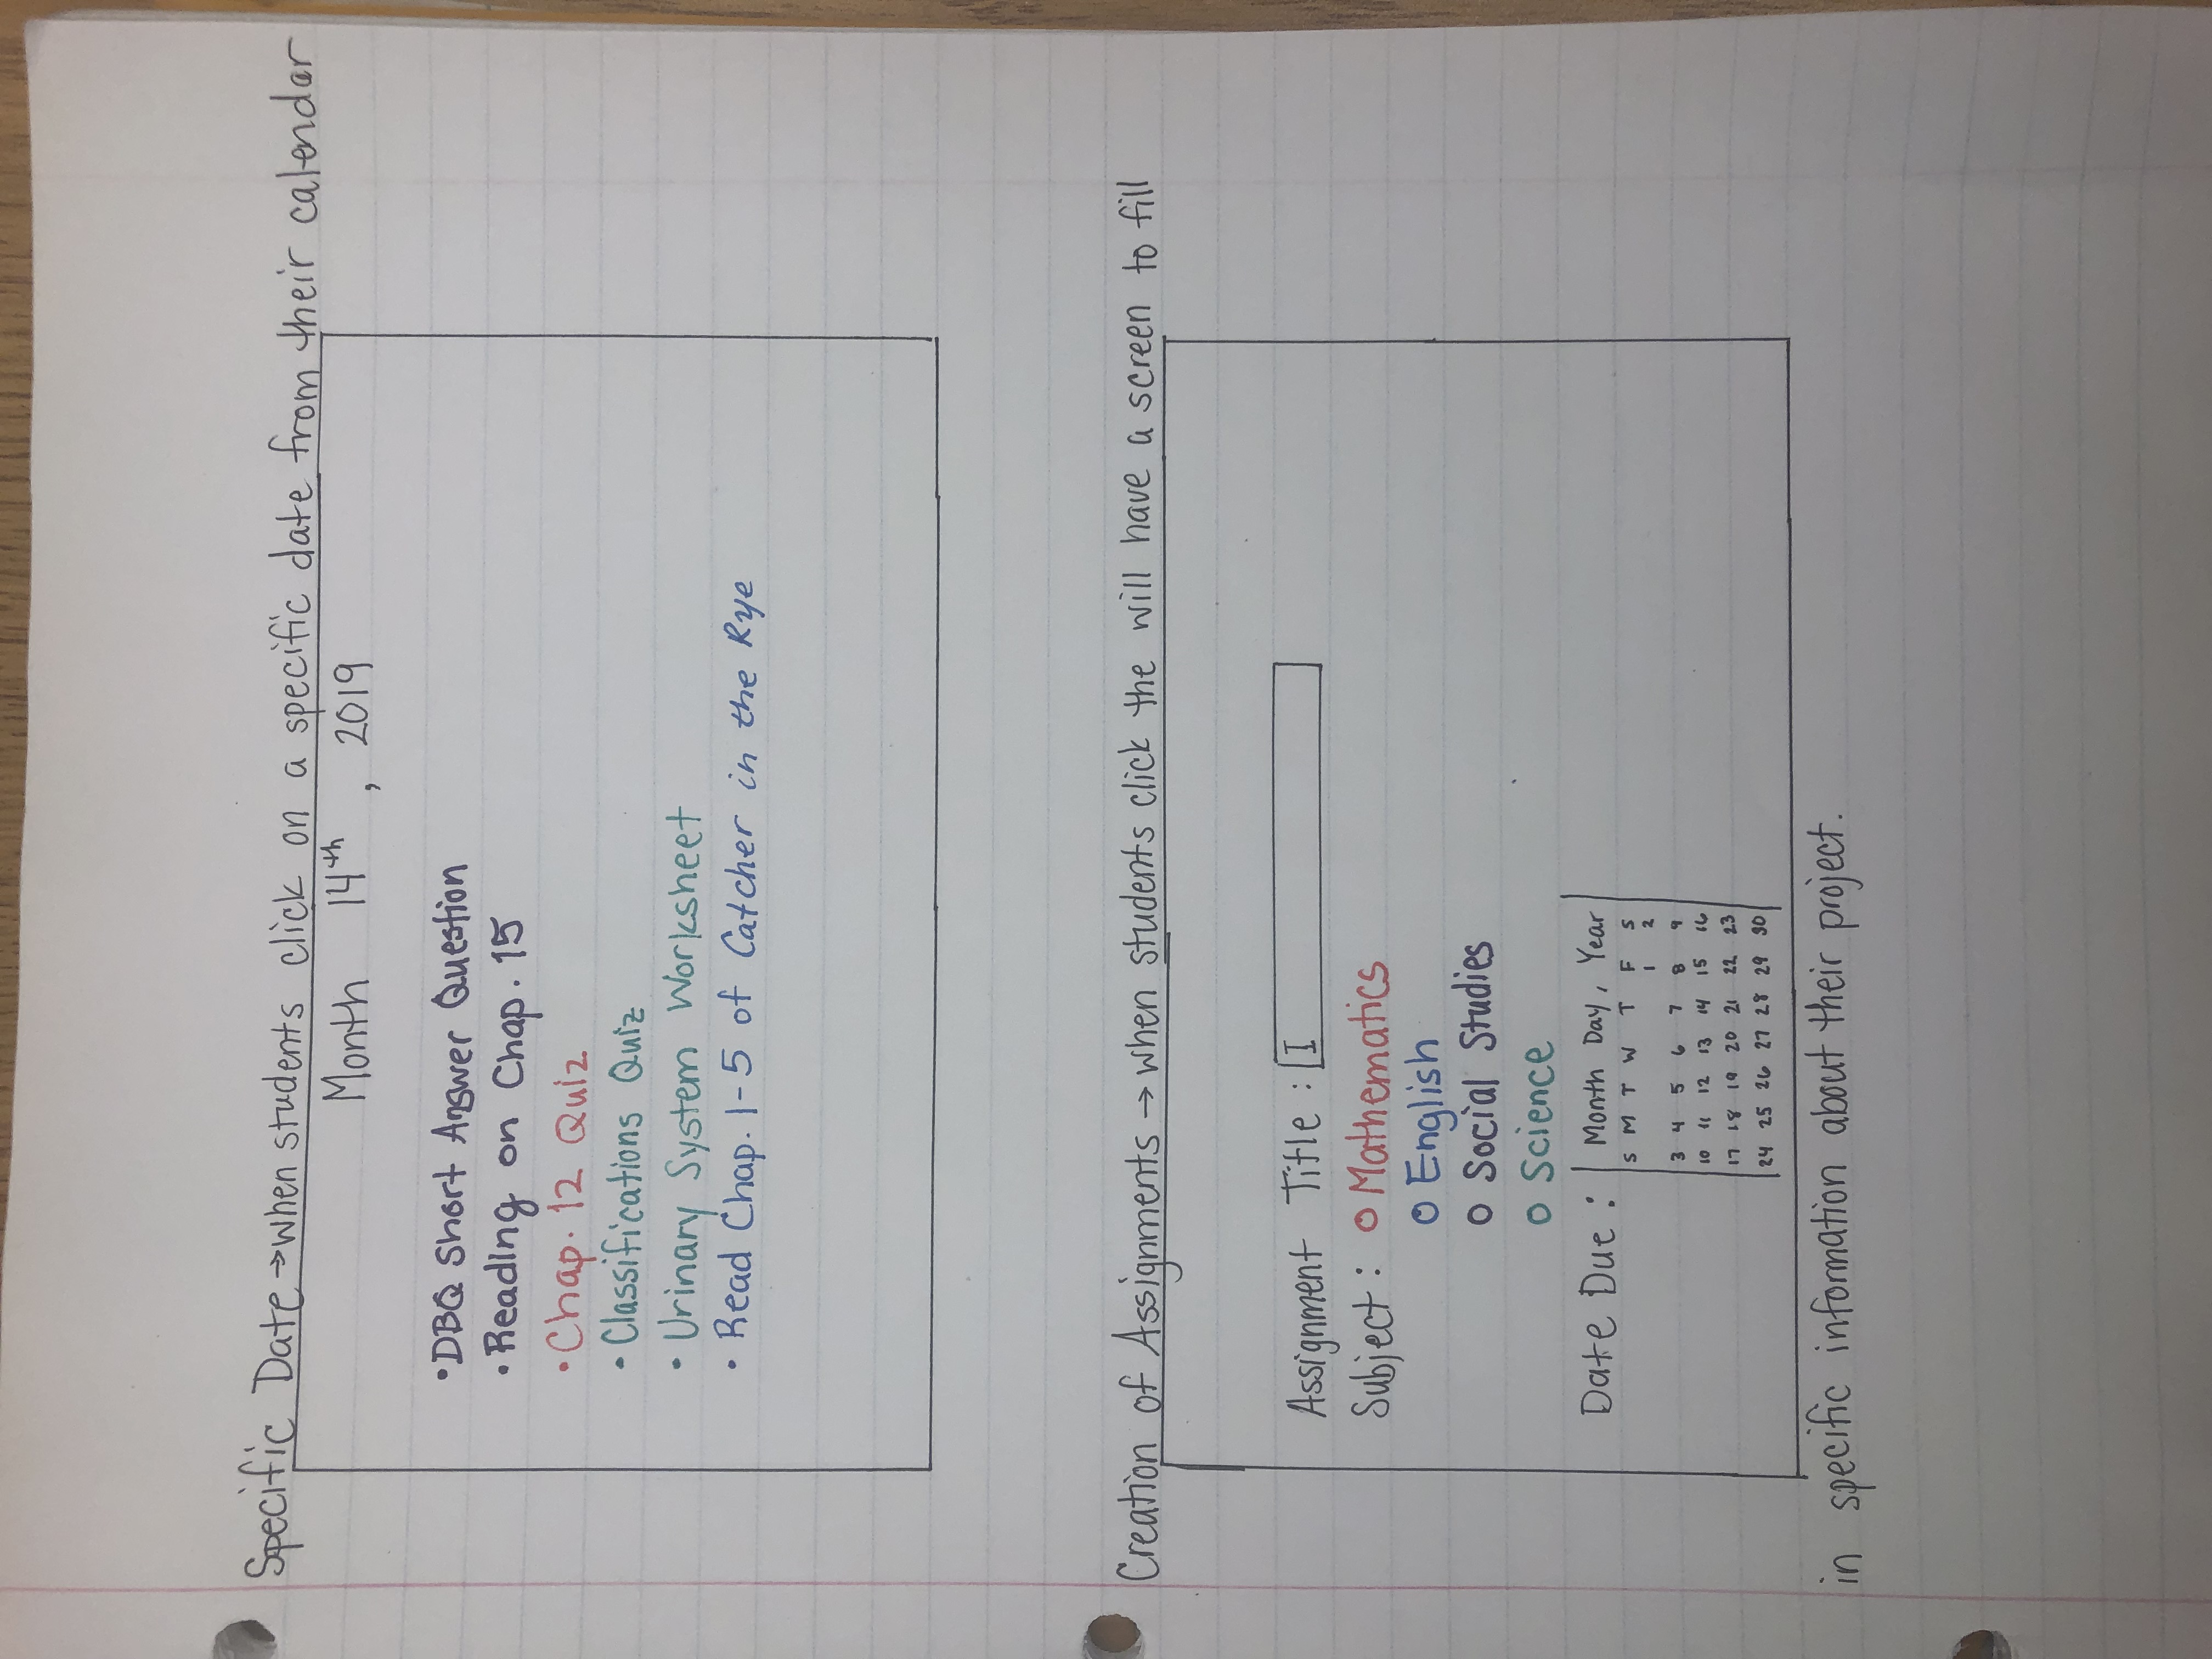 Specific Date → when students click on a specific date from their calendar
Month 14th, 2019
• DBQ Short Answer Question
• Reading on Chap. 15
• Chap. 12 Quiz
• Classifications Quiz
• Urinary System Worksheet
• Read Chap. 1-5 of Catcher in the Rye
Creation of Assignments → when students click the will have a screen to fill
Assignment Title : I
Subject : o Mathematics
o English
o Social Studies
o Science
Date Due : Month Day, Year
S M T W T F S
1 2
3 4 5 6 7 8 9
10 11 12 13 14 15 16
17 18 19 20 21 22 23
24 25 26 27 28 29 30
in specific information about their project.